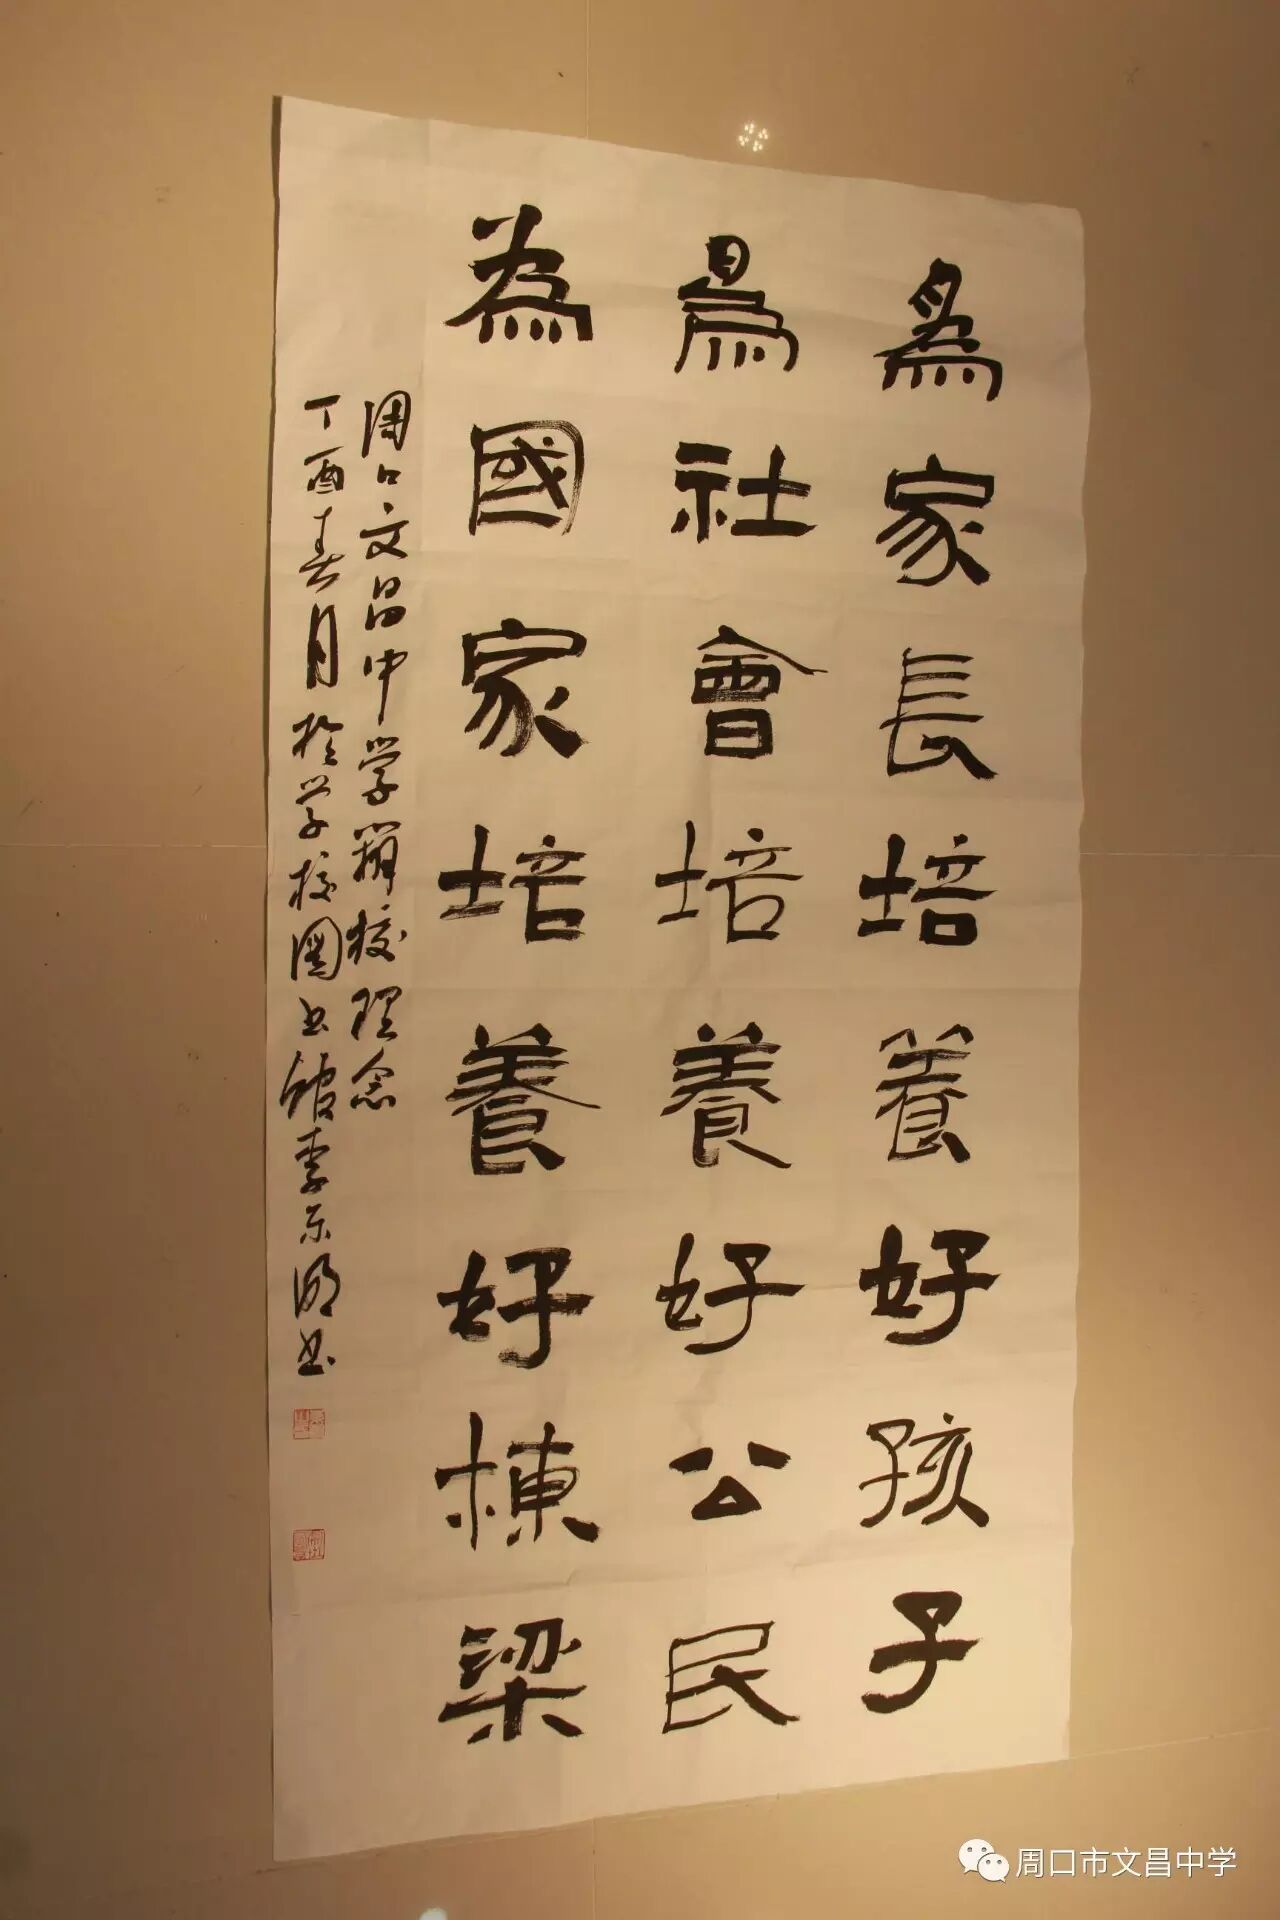 爲家長培養好孩子
爲社會培養好公民
為國家培養好棟梁
周口文昌中学辦校理念
丁酉春月於学校圖书館李东明书
周口市文昌中学